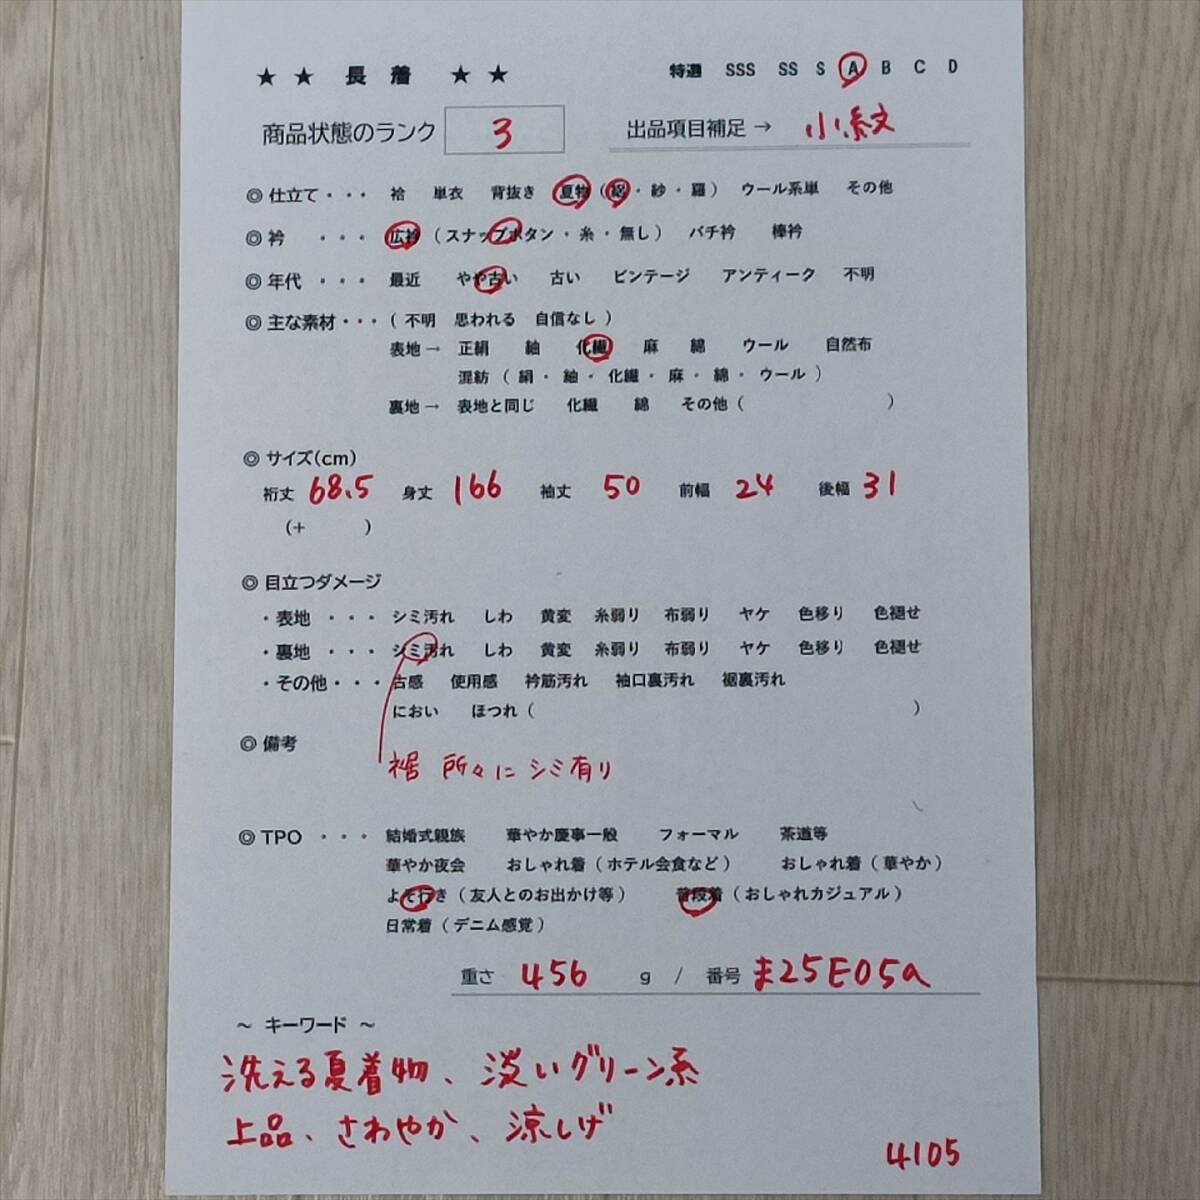 ★ ★ 長 着 ★ ★
特選 SSS SS S A B C D
商品状態のランク 3
出品項目補足→ 小紋
◎ 仕立て・・・ 袷 単衣 背抜き 夏物(絽・紗・羅) ウール系単 その他
◎ 衿 ・・・ 広衿(スナップボタン・糸・無し) バチ衿 棒衿
◎ 年代 ・・・ 最近 やや古い 古い ビンテージ アンティーク 不明
◎ 主な素材・・・(不明 思われる 自信なし)
表地→ 正絹 紬 化繊 麻 綿 ウール 自然布
混紡(絹・紬・化繊・麻・綿・ウール)
裏地→ 表地と同じ 化繊 綿 その他( )
◎ サイズ(cm)
裄丈 68.5 身丈 166 袖丈 50 前幅 24 後幅 31
(+ )
◎ 目立つダメージ
・表地 ・・・ シミ汚れ しわ 黄変 糸弱り 布弱り ヤケ 色移り 色褪せ
・裏地 ・・・ シミ汚れ しわ 黄変 糸弱り 布弱り ヤケ 色移り 色褪せ
・その他・・・ 古感 使用感 衿筋汚れ 袖口裏汚れ 裾裏汚れ
におい ほつれ( )
◎ 備考
裾 所々にシミ有り
◎ TPO ・・・ 結婚式親族 華やか慶事一般 フォーマル 茶道等
華やか夜会 おしゃれ着(ホテル会食など) おしゃれ着(華やか)
よそ行き(友人とのお出かけ等) 普段着(おしゃれカジュアル)
日常着(デニム感覚)
重さ 456 g / 番号 ま25E05a
～ キーワード ～
洗える夏着物、淡いグリーン系
上品、さわやか、涼しげ
4105